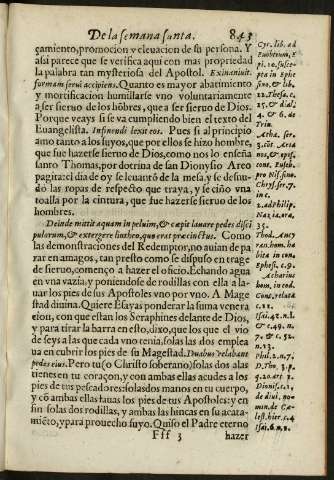 De la semana santa. 843
çamiento, promocion y eleuacion de su persona. Y
assi parece que se verifica aqui con mas propriedad
la palabra tan mysteriosa del Apostol. Exinaniuit
formam serui accipiens. Quanto es mayor abatimiento
y mortificacion humillarse vno voluntariamente
a ser sieruo de los hõbres, que a ser sieruo de Dios.
Porque veays si se va cumpliendo bien el texto del
Euangelista. In finem dilexit eos. Pues si al principio
amo tanto a los suyos, que por ellos se hizo hombre,
que fue hazerse sieruo de Dios, como nos lo enseña
santo Thomas, por dotrina de san Dionysio Areo
pagita: el dia de oy se leuantó de la mesa, y se desnu-
dó las ropas de respecto que traya, y se ciño vna
toalla por la cintura, que fue hazerse sieruo de los
hombres.
Deinde mittit aquam in peluim, & cœpit lauare pedes disci
pulorum, & extergere linteo, quo erat præcinctus. Como
las demonstraciones del Redemptor, no auian de pa
rar en amagos, tan presto como se dispuso en trage
de sieruo, començo a hazer el oficio. Echando agua
en vna vazia, y poniendose de rodillas con ella a la-
uar los pies de sus Apostoles vno por vno. A Mage
stad diuina. Quiere Esayas ponderar la suma venera
cion, con que estan los Seraphines delante de Dios,
y para tirar la barra en esto, dixo, que los que el vio
de seys alas que cada vno tenia, solas las dos emplea
ua en cubrir los pies de su Magestad. Duabus velabant
pedes eius. Pero tu (o Christo soberano) solas dos alas
tienes en tu coraçon, y con ambas ellas acudes a los
pies de tus pescadores: solas dos manos en tu cuerpo,
y cõ ambas ellas lauas los pies de tus Apostoles: y en
fin solas dos rodillas, y ambas las hincas en su acata-
miẽto, y para prouecho suyo. Quiso el Padre eterno
Fff 3 hazer
Cyr. lib. ad
pi. 10. susce-
pta in Ephe
sino, & lib.
12. Thesa. c.
25. & dial.
4. & 6. de
Trin.
Atha. ser.
3. cõt. Aria
nos, & epist.
cont. Euseb.
pro Nis. sino.
Chrys. ser. 7.
in c.
2. ad Philip.
Naz. ia, ora.
35.
Thod. Ancy
ran. hom. ha
bita in con.
Ephesi. c. 9.
Acharius
hom. in eod.
conc. relata
c. 22.
Isai. 42. n. 1.
& c. 49. n.
7. & c. 52.
n. 13.
Phil. 2. n. 7.
D. Tho. 3. p.
Dionis. c. 2.
de diui. no-
min. de Cæ-
lest. hier. c. 4
Isai. 6. n. 2.